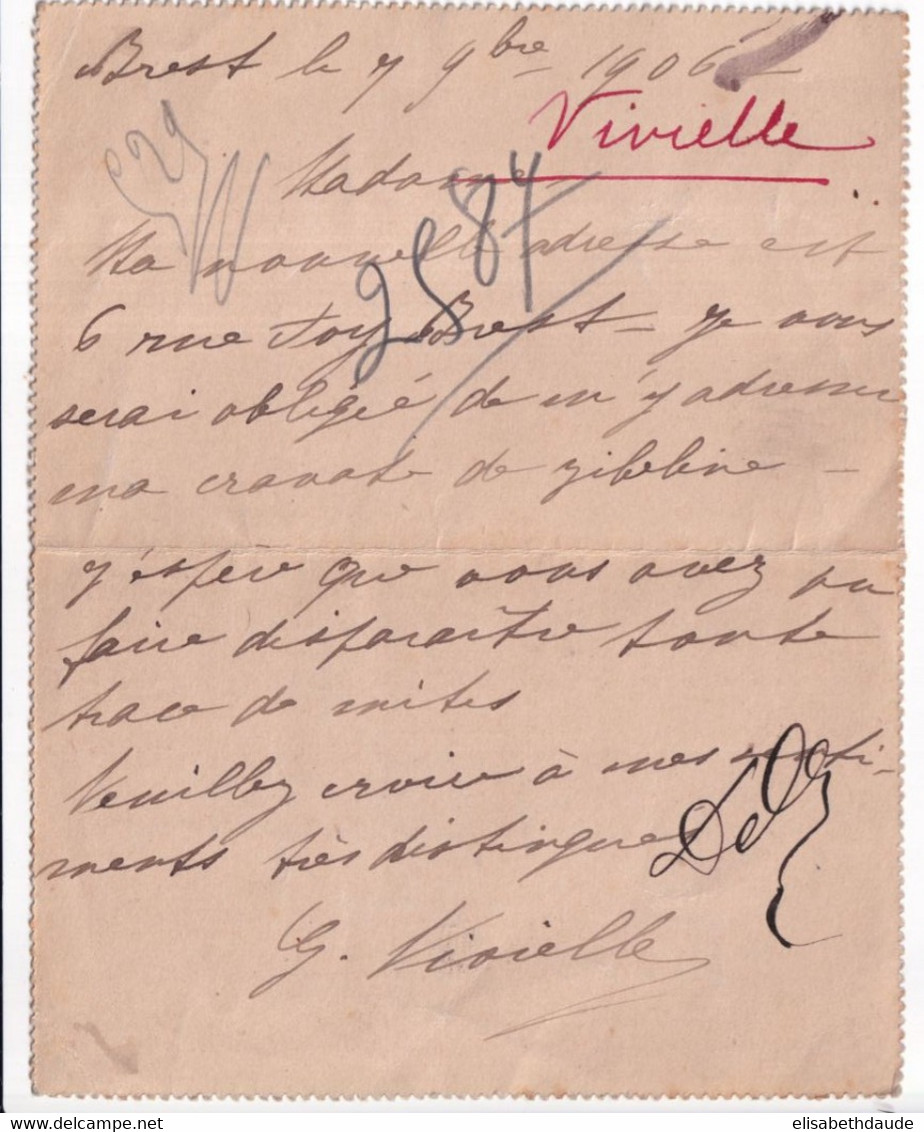 Brest le 7 9bre 1906
Vivielle
Madame
2584
Ma nouvelle adresse est
6 rue Foy Brest - je vous
serai obligée de m'y adresser
ma cravate de zibeline -
j'espère que vous avez pu
faire disparaître toute
trace de mites
Veuillez croire à mes senti-
ments très distingués
G. Vivielle
elisabethdaude